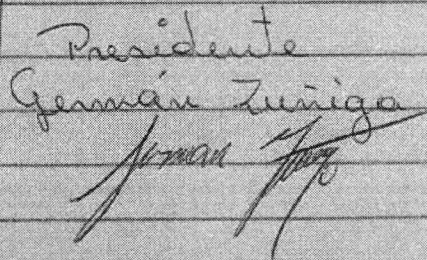 Presidente
Germán Zuñiga